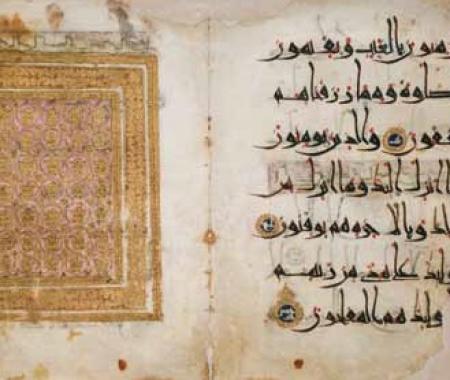 منون بالغيب ويقيمون
صلوة ومما رزقناهم
فقون والذين يومنون
ما انزل اليك وما انزل من
لك وبالاخرة هم يوقنون
ولئك على هدى من ربهم
ولئك هم المفلحون